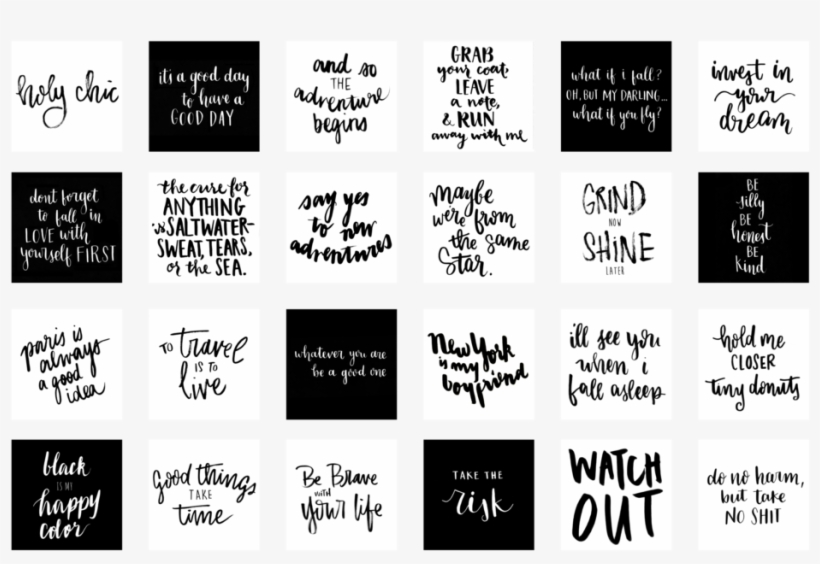 holy chic
it's a good day
to have a
GOOD DAY
and so
THE
adventure
begins
GRAB
your coat,
LEAVE
a note,
& RUN
away with me
what if i fall?
OH, BUT MY DARLING...
what if you fly?
invest in
your
dream
dont forget
to fall in
LOVE with
yourself FIRST
the cure for
ANYTHING
is SALTWATER-
SWEAT, TEARS,
or the SEA.
say yes
to new
adventures
maybe
we're from
the same
Star.
GRIND
NOW
SHINE
LATER
BE
silly
BE
honest
BE
kind
paris is
always
a good
idea
TO travel
IS TO
live
whatever you are
be a good one
New York
is my
boyfriend
ill see you
when i
fall asleep
hold me
CLOSER
tiny donuts
black
IS MY
happy
color
Good things
TAKE
time
Be Brave
with
your life
TAKE THE
risk
WATCH
OUT
do no harm,
but take
NO SHIT